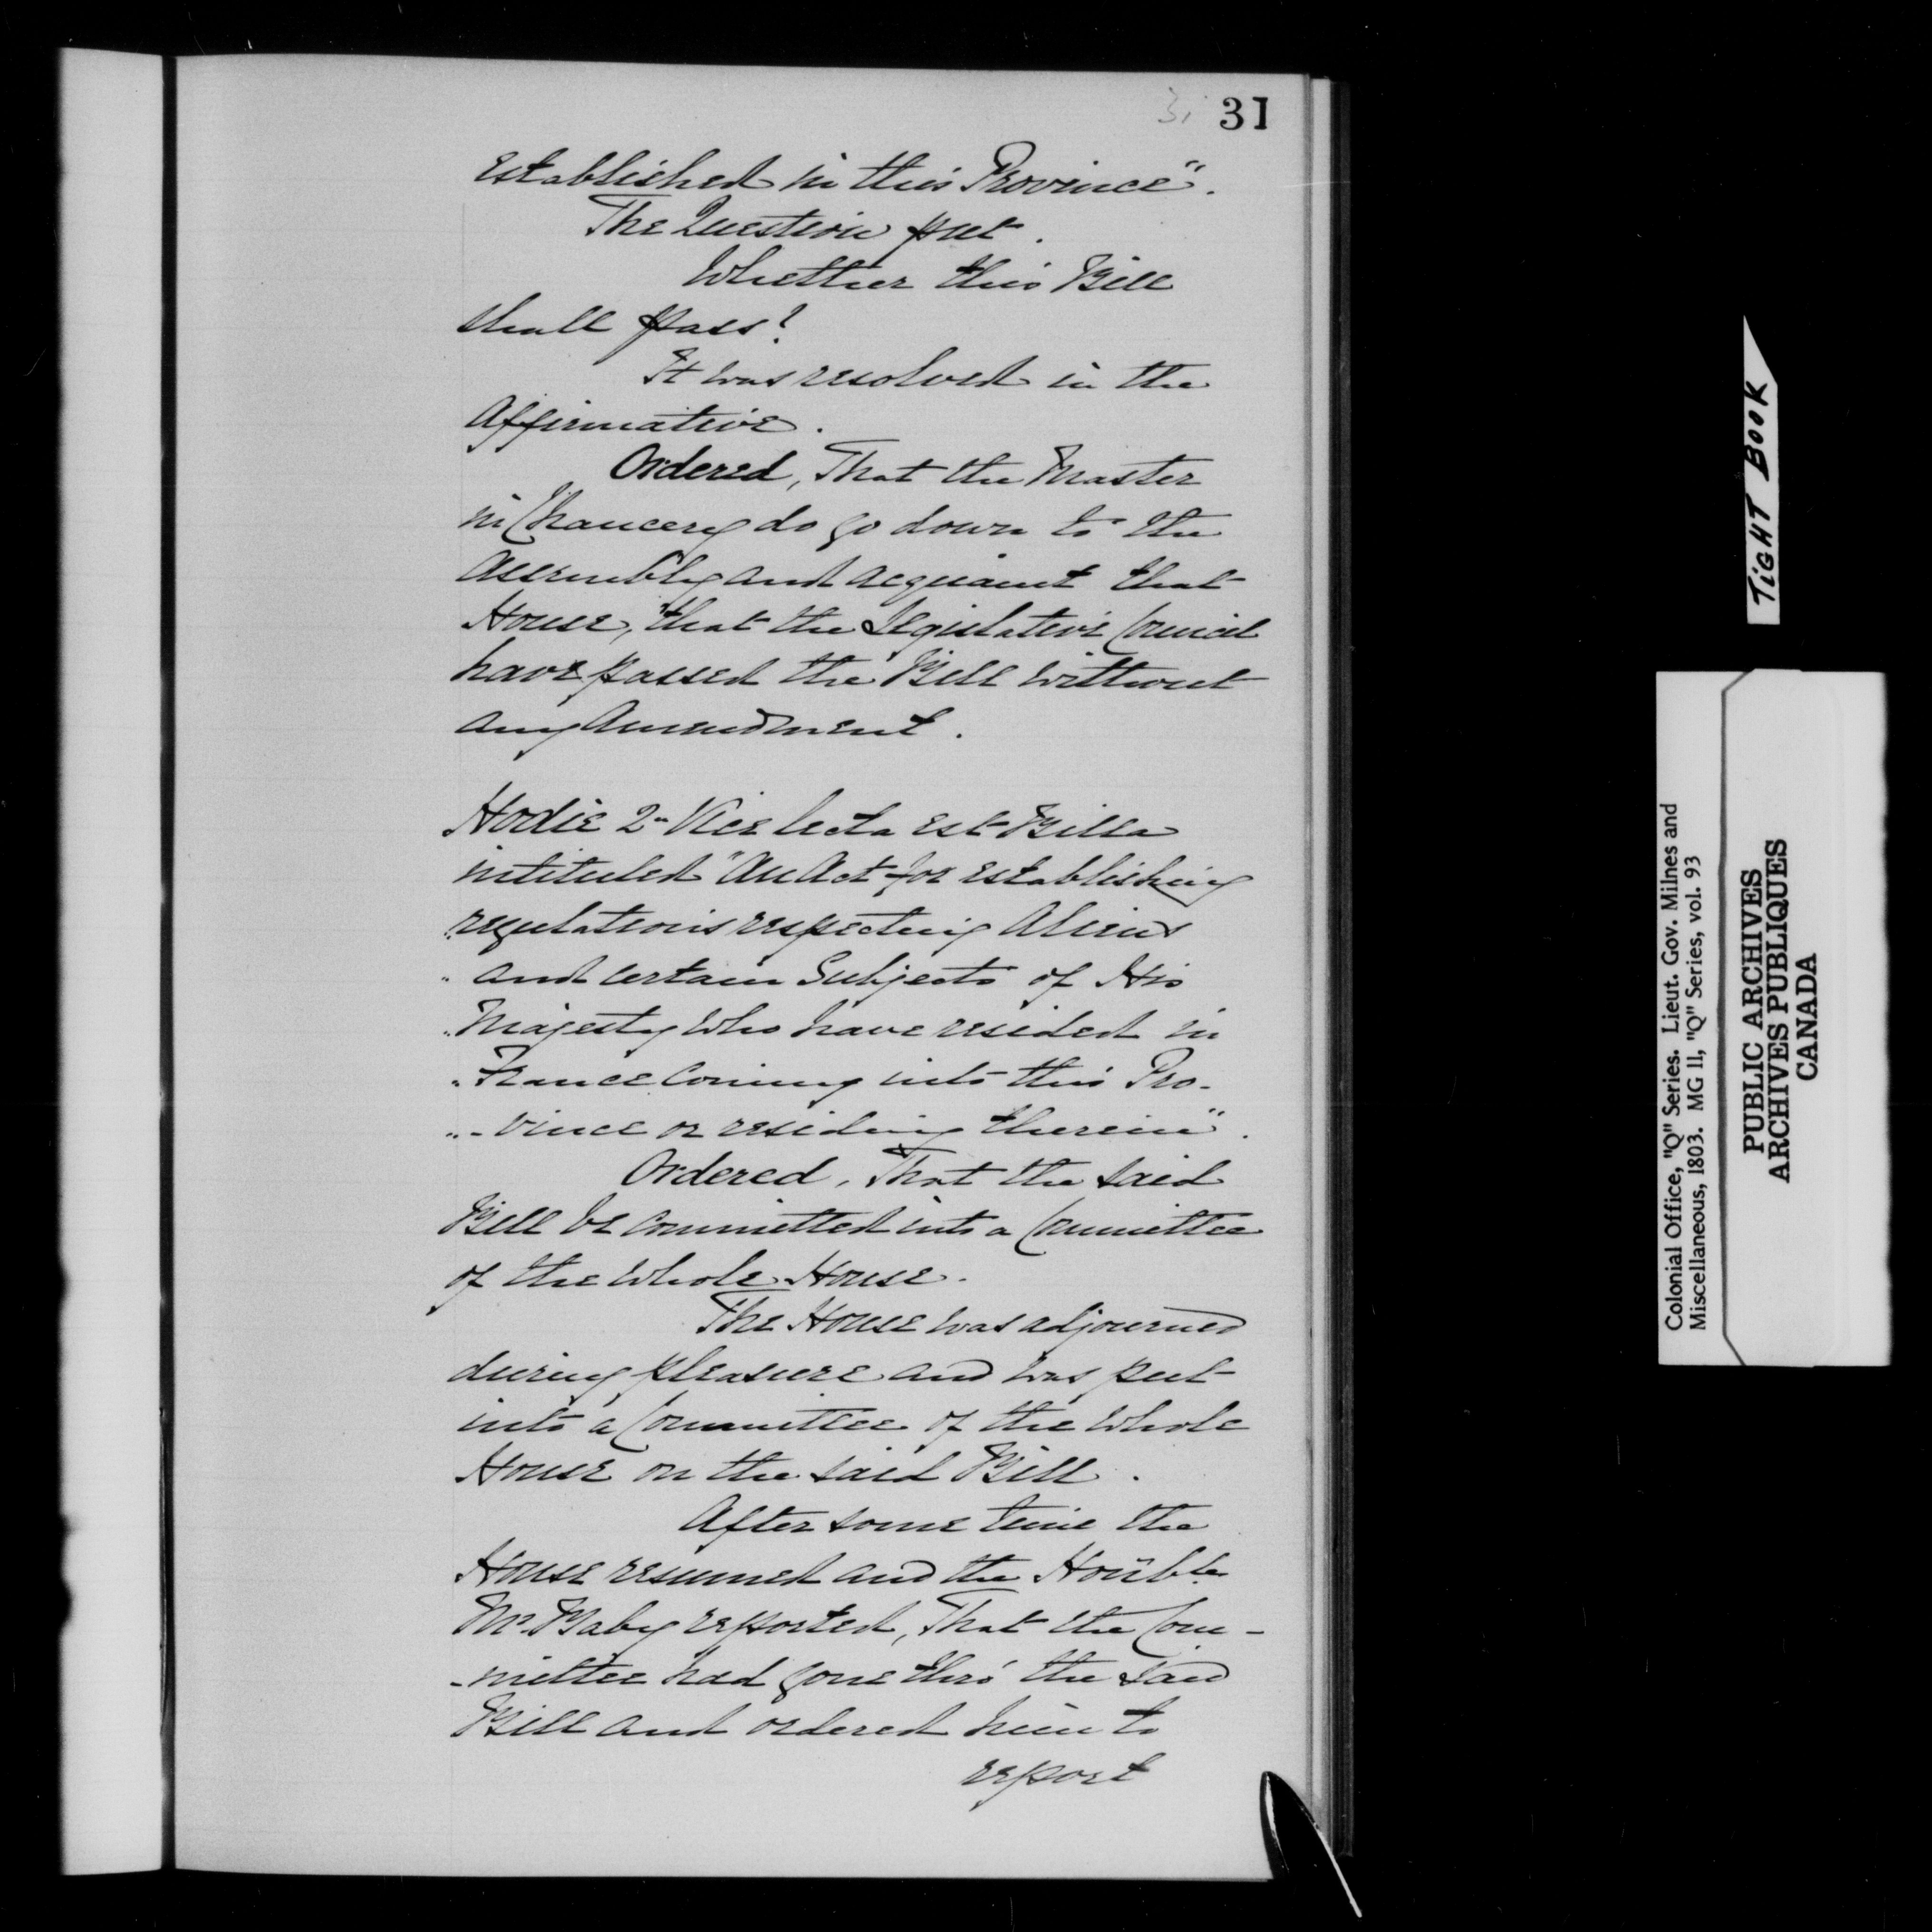 31 31
established in this Province".
The Question put.
Whether this Bill
shall pass?
It was resolved in the
affirmative.
Ordered, That the Master
in Chancery do go down to the
Assembly and acquaint that
House, "that the Legislative Council
have passed the Bill without
any Amendment.
Hodie 2a Vice lecta est Billa
intituled "An Act for establishing
"regulations respecting Aliens
"and certain Subjects of His
"Majesty who have resided in
"France coming into this Pro-
"-vince or residing therein".
Ordered, That the said
Bill be committed into a Committee
of the whole House.
The House was adjourned
during pleasure and was put
into a Committee of the whole
House on the said Bill.
After some time the
House resumed and the Honble
Mr. Baby reported, That the Com-
-mittee had gone thro' the said
Bill and ordered him to
report
TIGHT BOOK
Colonial Office, "Q" Series. Lieut. Gov. Milnes and
Miscellaneous, 1803. MG 11, "Q" Series, vol. 93
PUBLIC ARCHIVES
ARCHIVES PUBLIQUES
CANADA